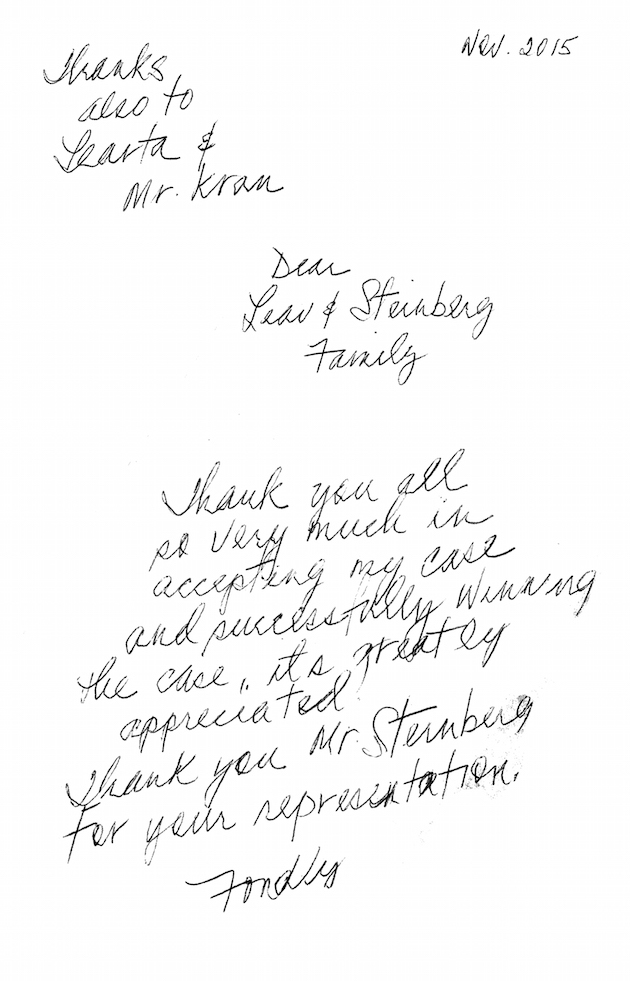 Nov. 2015
Thanks
also to
Learta &
Mr. Kran
Dear
Leav & Steinberg
Family
Thank you all
so very much in
accepting my case
and successfully winning
the case, it's greatly
appreciated
Thank you Mr. Sternberg
for your representation.
Fondly